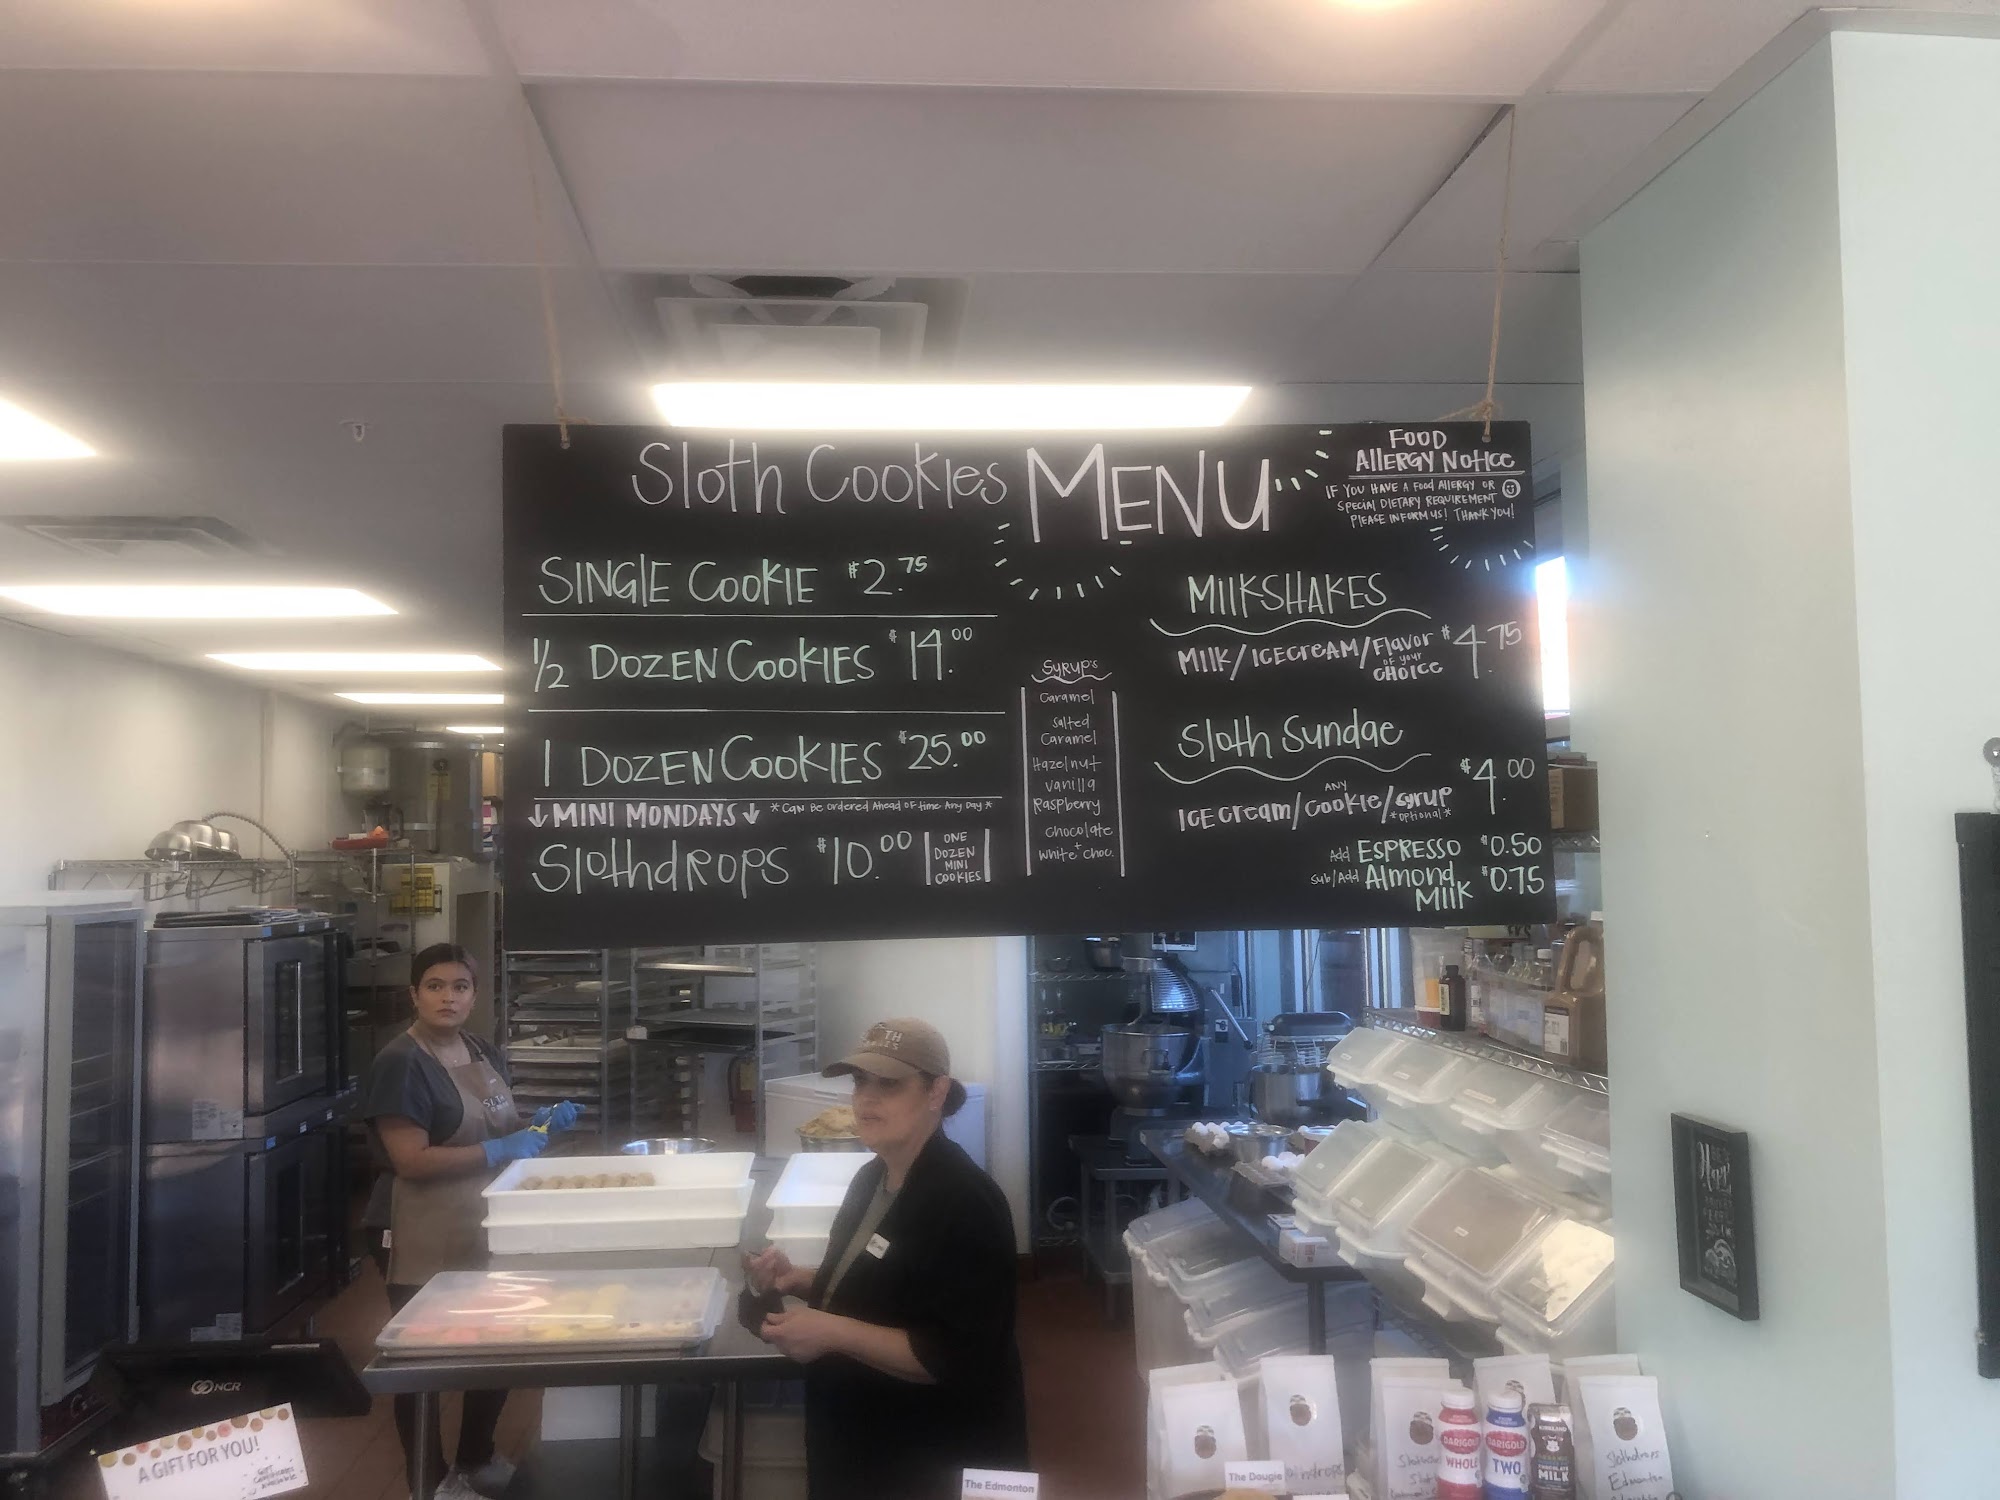 Sloth Cookies MENU
FOOD
ALLERGY NOTICE
IF YOU HAVE A FOOD ALLERGY OR
SPECIAL DIETARY REQUIREMENT
PLEASE INFORM US! THANK YOU!
SINGLE COOKIE $2.75
1/2 DOZEN COOKIES $14.00
1 DOZEN COOKIES $25.00
↓ MINI MONDAYS ↓ *CAN BE ORDERED AHEAD OF TIME ANY DAY*
SlothdROPS $10.00
ONE
DOZEN
MINI
COOKIES
SYRUP'S
Caramel
Salted
Caramel
Hazelnut
Vanilla
Raspberry
Chocolate
+
White Choc.
MILKSHAKES
MILK/ICECREAM/Flavor $4.75
OF YOUR
CHOICE
Sloth Sundae
$4.00
ANY
ICE Cream/Cookie/Syrup
*optional*
Add ESPRESSO $0.50
Sub/Add Almond $0.75
MILK
NCR
A GIFT FOR YOU!
The Edmonton
The Dougie
DARIGOLD
WHOLE
DARIGOLD
TWO
KIRKLAND
CHOCOLATE
MILK
Slothdrops